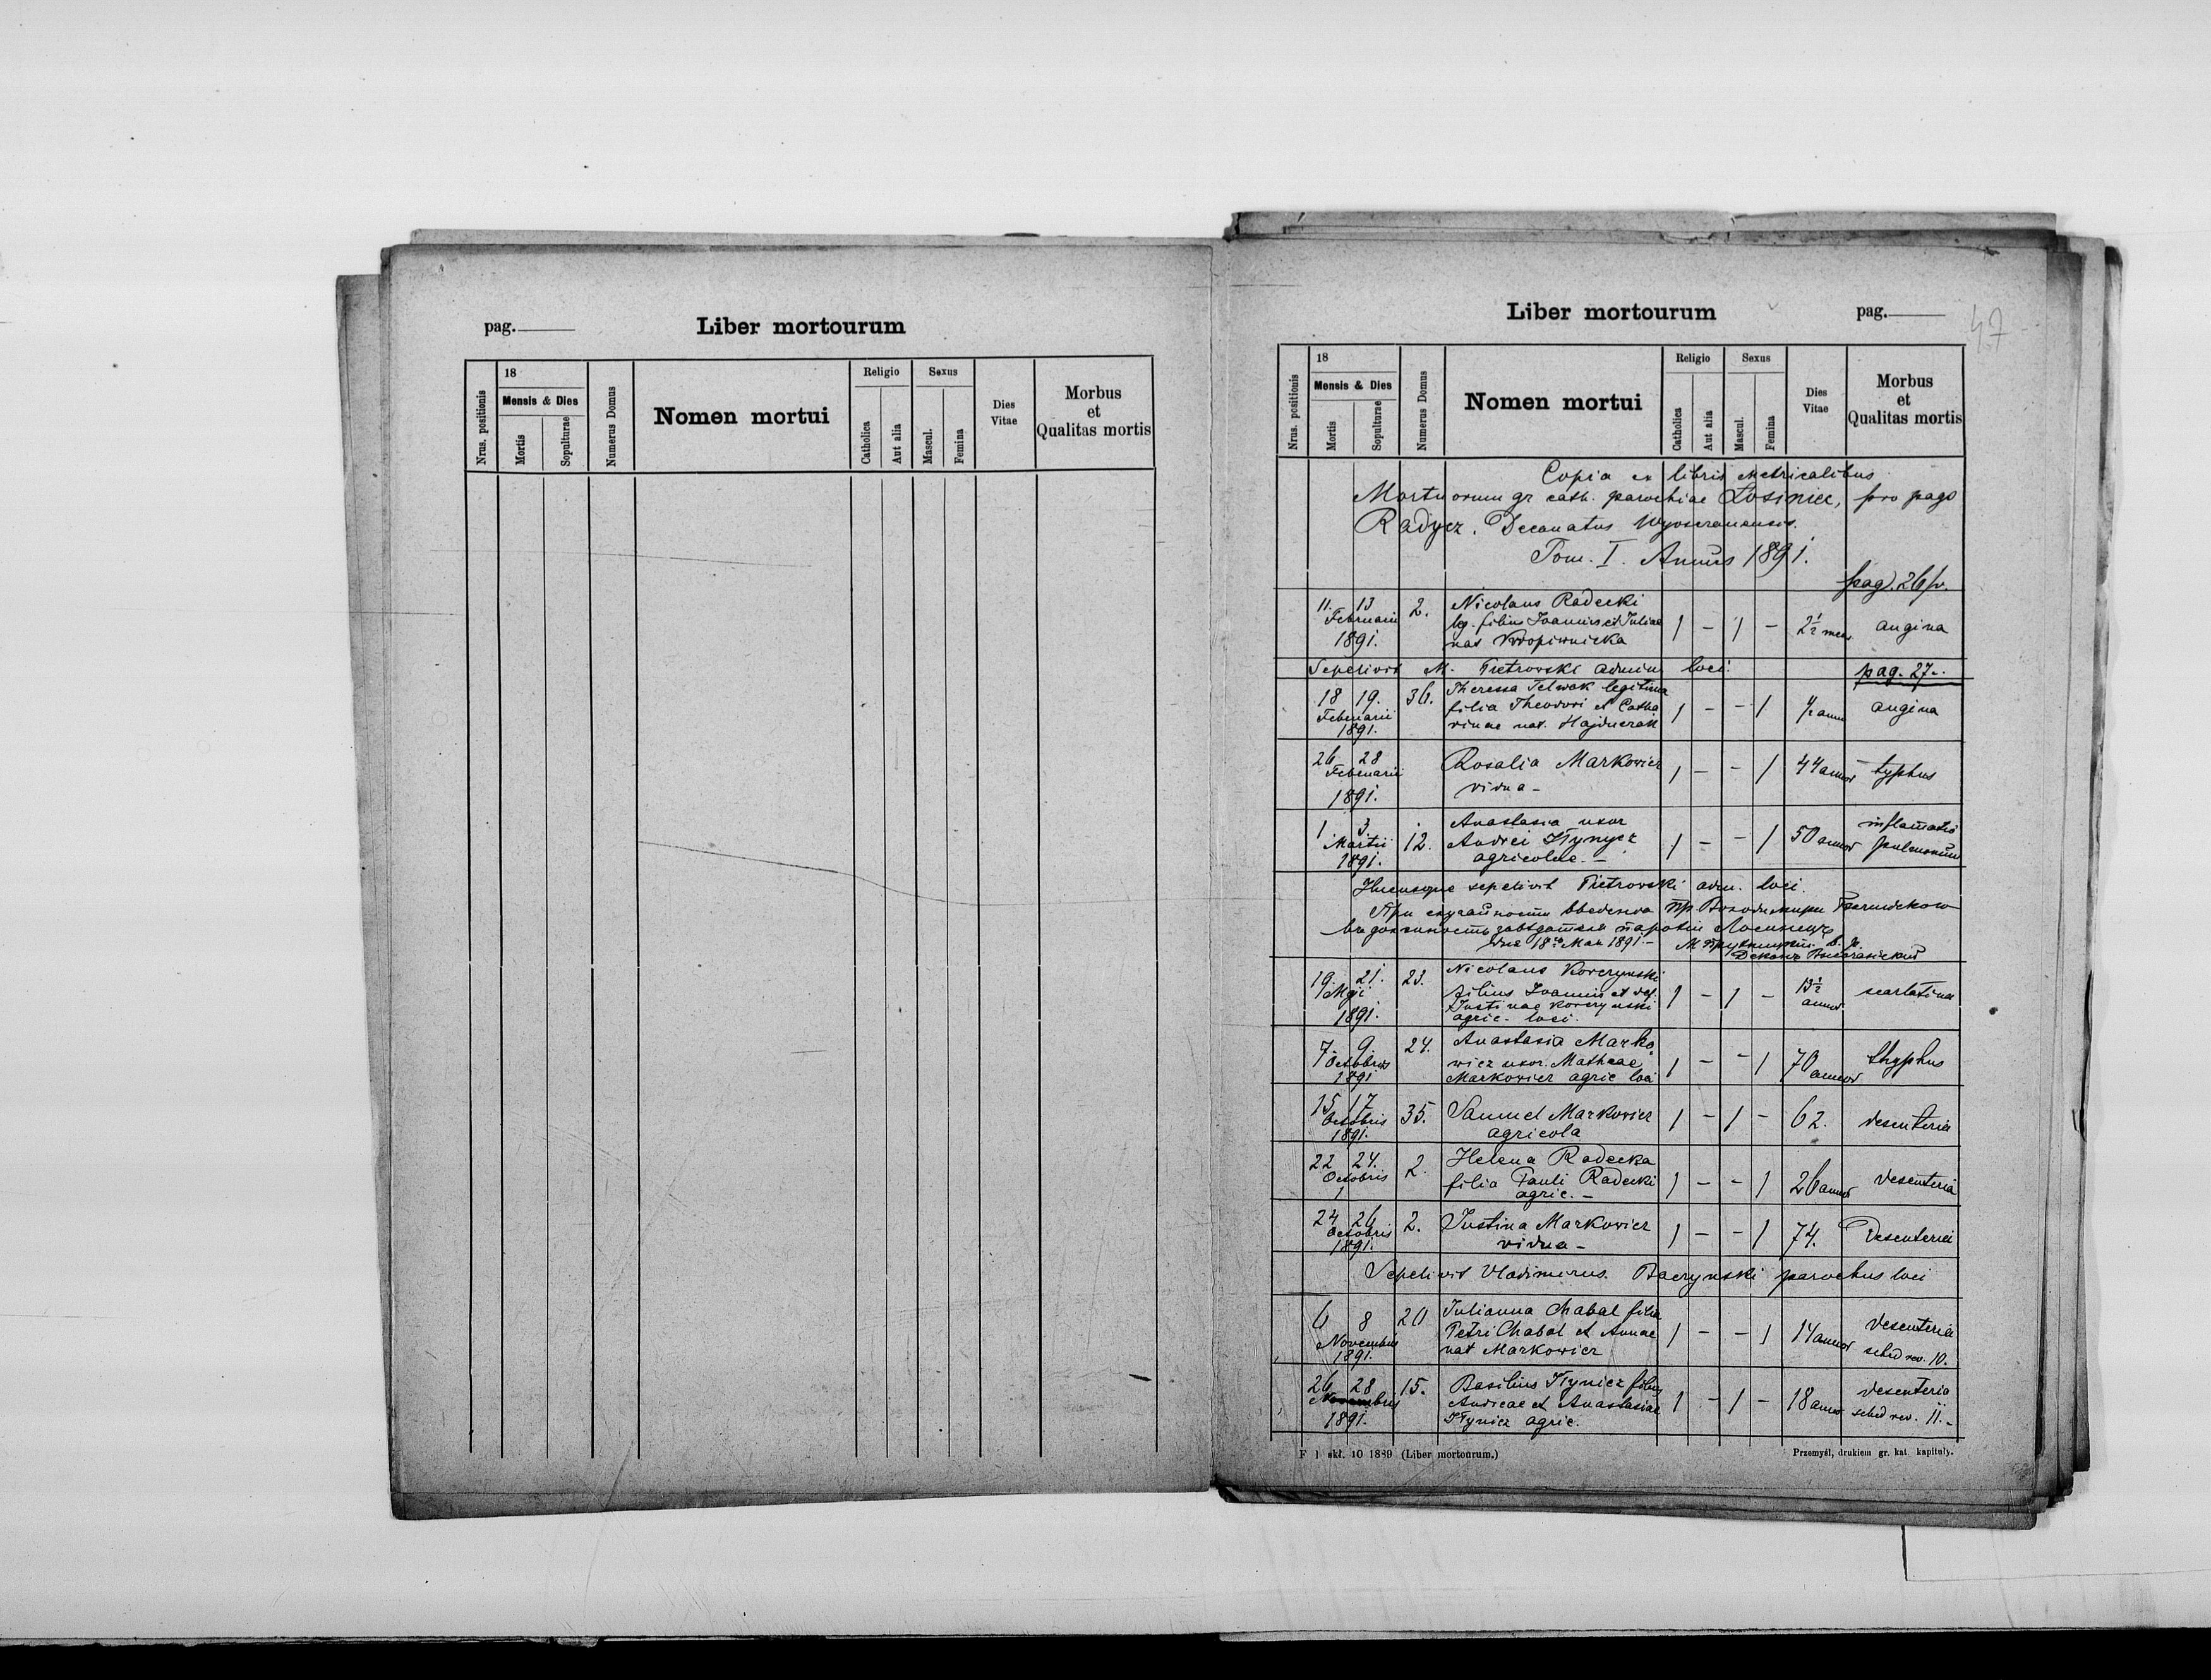 pag.
Liber mortourum
Nrus. positionis
18
Mensis & Dies
Mortis
Sepulturae
Numerus Domus
Nomen mortui
Religio
Catholica
Aut alia
Sexus
Mascul.
Femina
Dies
Vitae
Morbus
et
Qualitas mortis
Liber mortourum
pag.
47
Nrus. positionis
18
Mensis & Dies
Mortis
Sepulturae
Numerus Domus
Nomen mortui
Religio
Catholica
Aut alia
Sexus
Mascul.
Femina
Dies
Vitae
Morbus
et
Qualitas mortis
Copia ex libris Metricalibus
Mortuorum gr cath. parochiae Łosiniec, pro pago
Radycz. Decanatus
Tom. I. Annus 1891.
pag. 26/v.
11. 13 2. Nicolaus Radecki
Februarii leg. filius Joannis et Juliae
1891. nat 1 - 1 - 2½ mens angina
Sepelivit M. Pietrowski admin loci.
pag. 27.
18 19. 36. Theressa Telwak legitima
Februarii filia Theodori et Catha
1891. rinae nat. Hajduczak 1 - - 1 ½ anni angina
26 28 Rosalia Markowicz 1 - - 1 44 annor typhus
Februarii
1891. vidua -
1 3 12. Anastasia uxor
Martii Andrei Ilynycz 1 - - 1 50 annor inflamatio
1891. agricolae. - pulmonum
Hucusque sepelivit Pietrowski adm. loci.
При
парохіи Лосинецъ
дня 18го Мая 1891. -
Деканъ
19. 21. 23. Nicolaus Korczynski
Maji filius Joannis et def.
Justinae Korczynski 1 - 1 - 13½ annor scarlatina
1891. agric. loci.
7. 9. 24. Anastasia Marko
Octobris wicz uxor. Matheae 1 - - 1 70 annor thyphus
1891 Markowicz agric loci
15 17 35. Samuel Markowicz 1 - 1 - 62. desenteria
Octobris
1891. agricola
22 24. 2. Helena Radecka
Octobris filia Pauli Radecki 1 - - 1 26 annor desenteria
1 agric. -
24 26 2. Justina Markowicz 1 - - 1 74. Desenteria
Octobris
1891. vidua -
Sepelivit Vladimirus Baczynski parochus loci
6 8 20 Julianna Chabal filia
Novembris Petri Chabal et Annae 1 - - 1 14 annor desenteria
1891. nat Markowicz sched rev. 10.
26 28 15. Basilius Ilynicz filius
Novembris Andreae et Anastasiae 1 - 1 - 18 annor desenteria
1891. Ilynicz agric. sched rev. 11. -
F 1 skł. 10 1889 (Liber mortourum.)
Przemyśl, drukiem gr. kat. kapituły.